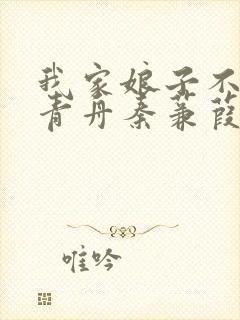 我家娘子不
青丹秦蒹葭
唯吟